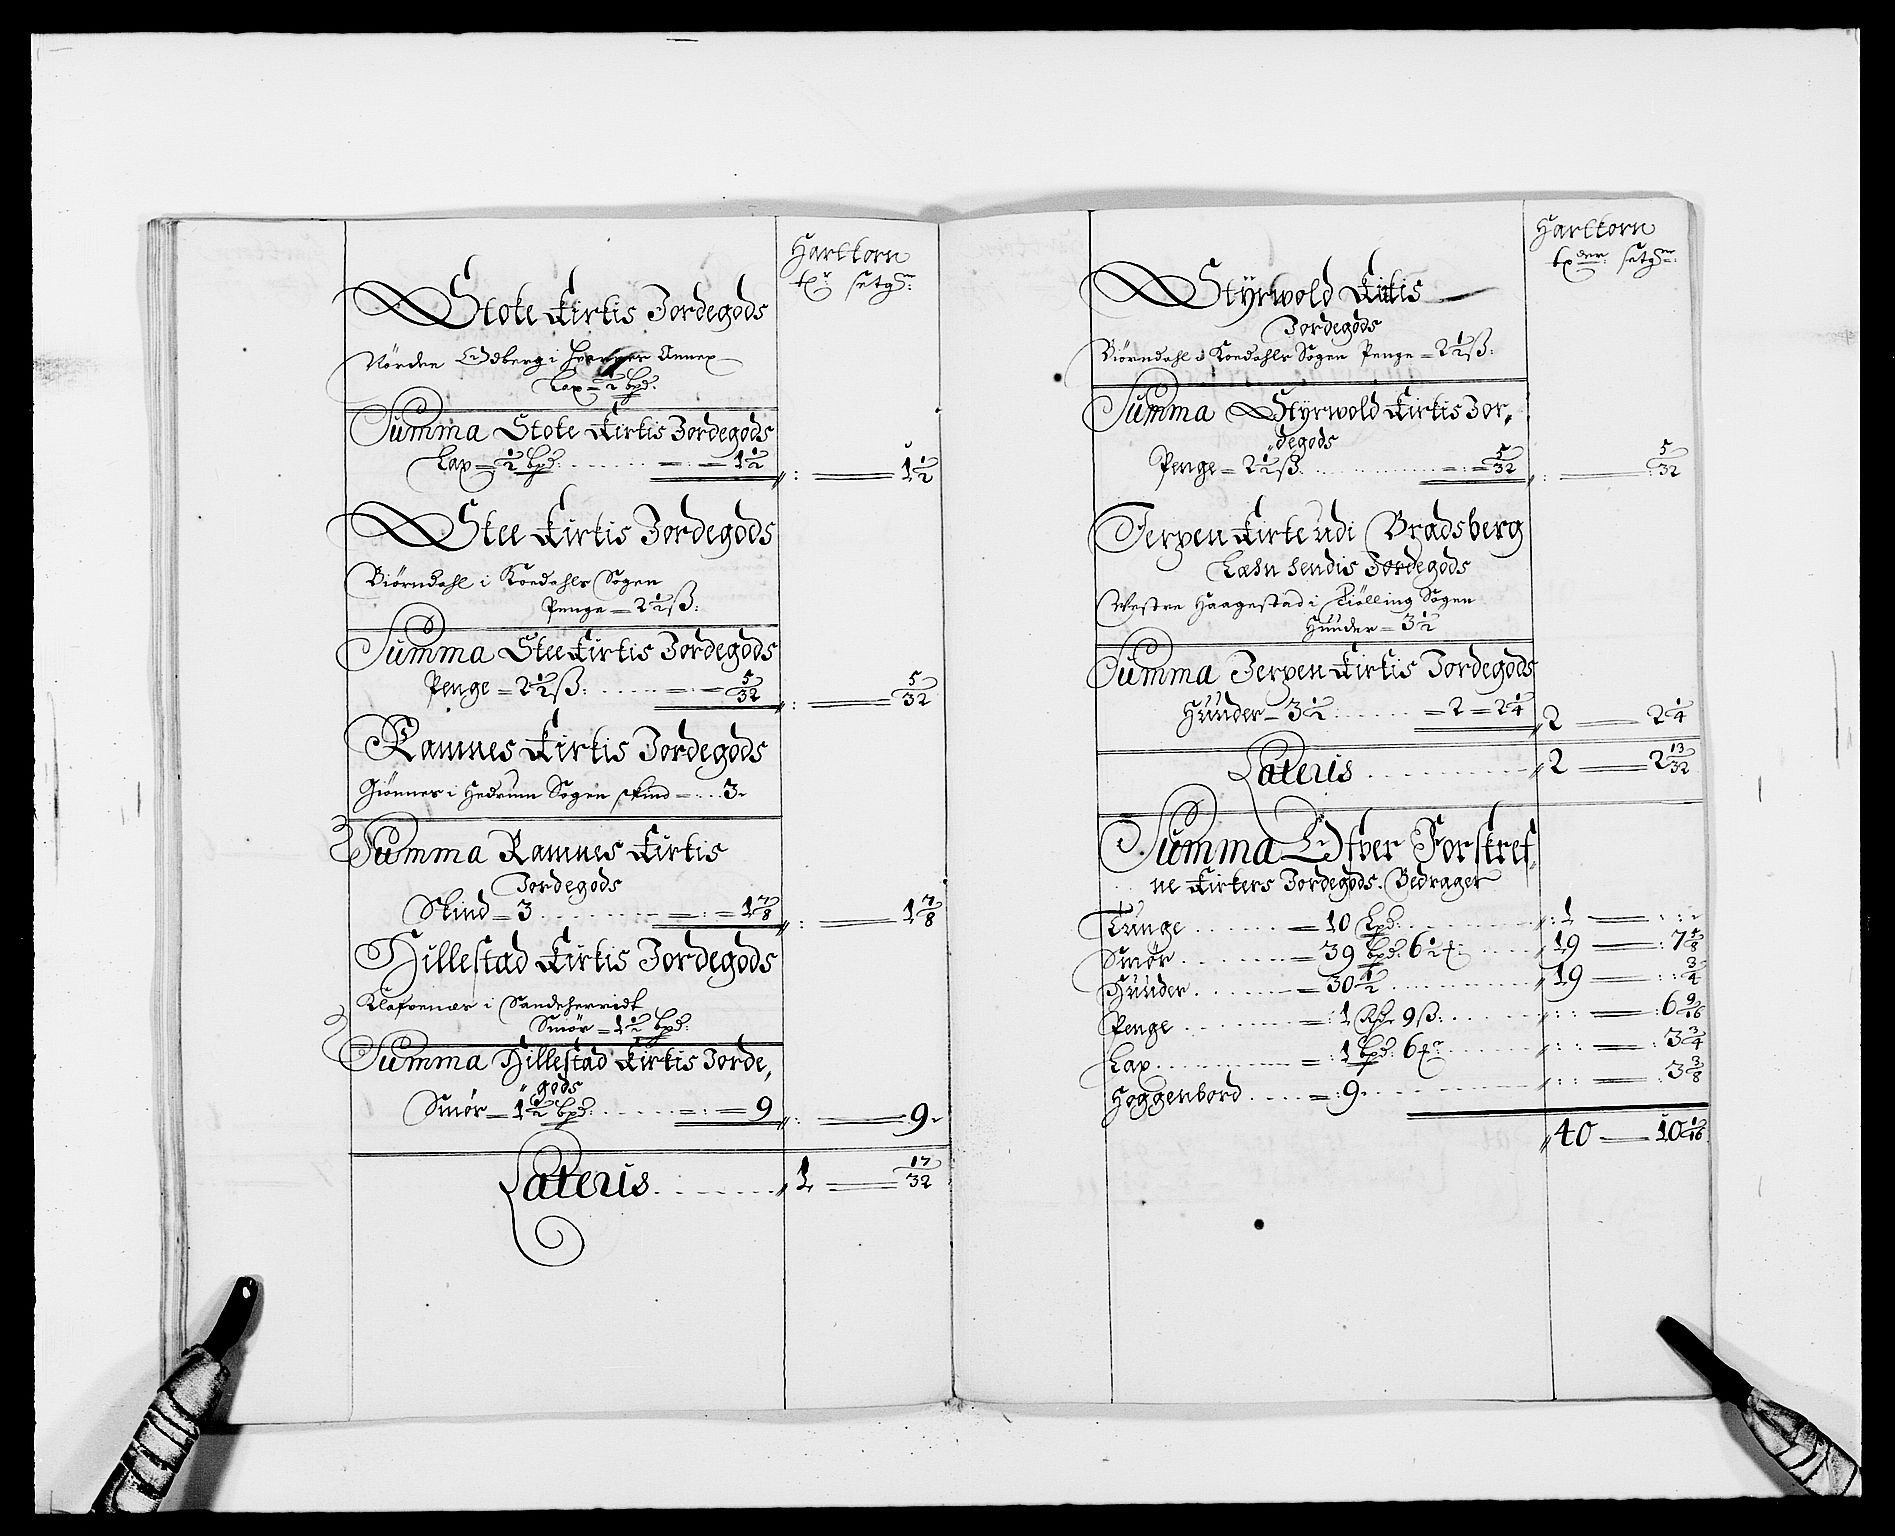 Hartkorn
tr setg:
Stoke Kirkis Jordegods
Nörden Lidberg i Annex
Lax = ½ bpd:
Summa Stoke Kirkis Jordegods
Lax = ½ bpd: = : = 1½ : 1½
Stee Kirkis Jordegods
Biörndahl i Koedahls Sogen
Penge = 2½ ß:
Summa Stee Kirkis Jordegods
Penge = 2½ ß: = : = 5/32 : 5/32
Ramnes Kirkis Jordegods
Giönnes i Hedrum Sogen Skind = 3
Summa Ramnes Kirkis
Jordegods
Skind = 3 = : = 1⅞ : 1⅞
Hillestad Kirkis Jordegods
Klafvenæs i Sandeherridt
Smör = 1½ bpd:
Summa Hillestad Kirkis Jorde,
" gods
Smör = 1½ bpd: = : = 9 : 9
Lateris 1 = 17/32
Hartkorn
setg:
Styrwold Kirkis
Jordegods
Biörndahl i Koedahls Sogen Penge = 2½ ß:
Summa Styrwold Kirkis Jor,
" degods
Penge = 2½ ß: = : = 5/32 : 5/32
Jerpen Kirke udi Bradsberg
Læhn hendis Jordegods
Westre Haagestad i Kiölling Sogen
Huuder = 3½
Summa Jerpen Kirkis Jordegods
Huuder = 3½ = 2 = 2¼ 2 = 2¼
Lateris 2 = 2 13/32
Summa Ofver Forskref,
ne Kirkers Jordegods Bedrager
Tunge = 10 bpd: 1
Smör = 39 bpd: 6½ 19 = : 7⅛
Huuder = 30½ 19 = : ¾
Penge = : 1 Rdr 9 ß: : 6 9/16
Lax = : 1 bpd: 6 : 3¾
Hoggenbord = : 9 : 3⅜
40 = 10 1/16